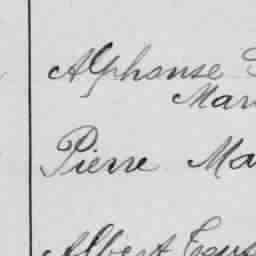 Alphonse
Mar
Pierre Ma
Albert